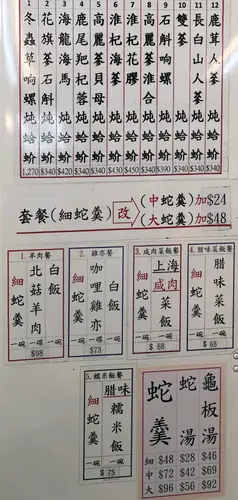 1 2 3 4 5 6 7 8 9 10 11 12
冬蟲草响螺炖蛤蚧
花旗蔘石斛炖蛤蚧
海龍海馬炖蛤蚧
鹿尾羓杞蓉炖蛤蚧
高麗蔘貝母炖蛤蚧
淮杞海蔘炖蛤蚧
淮杞花膠炖蛤蚧
高麗蔘淮合炖蛤蚧
石斛响螺炖蛤蚧
雙蔘炖蛤蚧
長白山人蔘炖蛤蚧
鹿茸人蔘炖蛤蚧
1,270 $340 $420 $340 $340 $430 $450 $340 $390 $340 $340 $340
套餐(細蛇羹)改
(中蛇羹)加$24
(大蛇羹)加$48
1.羊肉餐
細蛇羹 一碗
北菇羊肉 一碟
白飯 一碗
$98
2.雞亦餐
細蛇羹 一碗
咖哩雞亦 一碟
白飯 一碗
$73
3.咸肉菜飯餐
細蛇羹 一碗
上海咸肉菜飯 一碗
$ 68
4.腊味菜飯餐
細蛇羹 一碗
腊味菜飯 一碗
$ 68
5.糯米飯餐
細蛇羹 一碗
腊味糯米飯 一碗
$ 75
蛇羹 蛇湯 龜板湯
細 $48 $28 $46
中 $72 $42 $69
大 $96 $56 $92